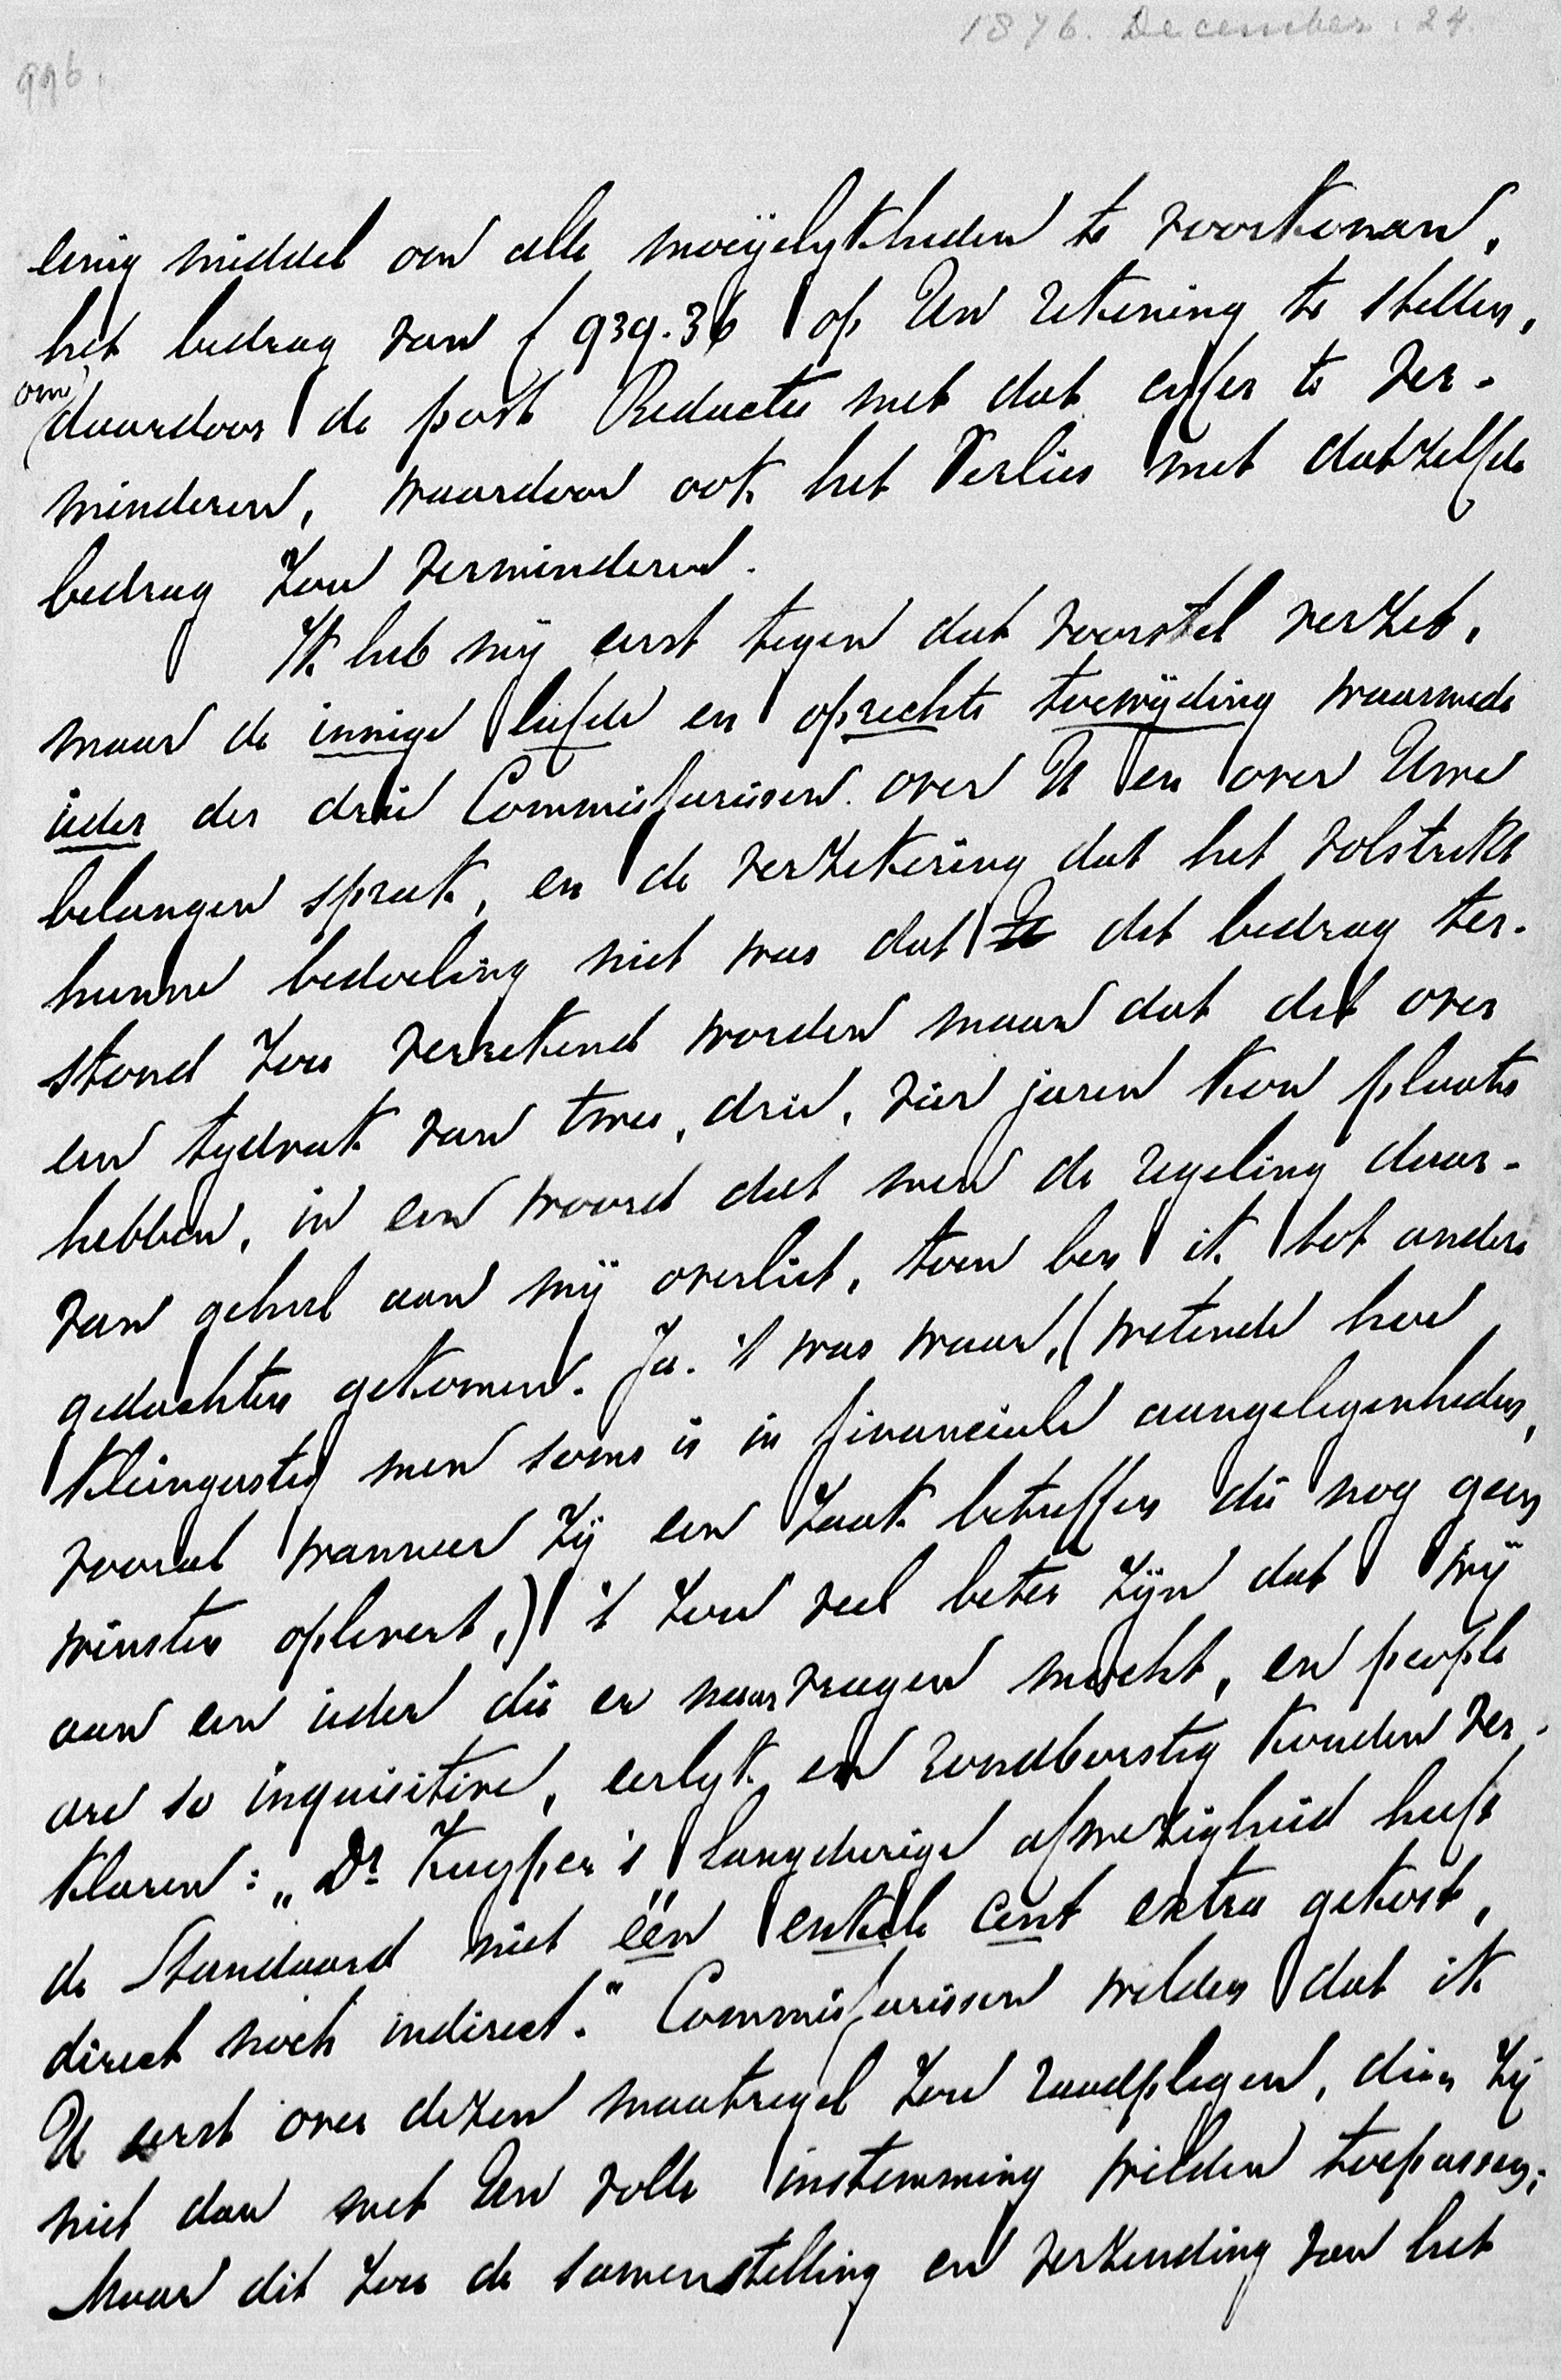 1876. December. 24.
996.
eenig middel om alle moeijelykheden te voorkomen,
het bedrag van f 939.36 op Uw rekening te stellen,
om
daardoor de post Redactie met dat cijfer te ver-
minderen, waardoor ook het Verlies met datzelfde
bedrag zou verminderen.
Ik heb mij eerst tegen dat voorstel verzet,
maar de innige liefde en oprechte toewijding waarmede
ieder der drie Commissarissen over U en over Uwe
belangen sprak, en de verzekering dat het volstrekt
hunne bedoeling niet was dat U dit bedrag ter-
stond zou verrekend worden maar dat dit over
een tydvak van twee, drie, vier jaren kon plaats
hebben, in een woord dat men de regeling daar-
van geheel aan mij overliet, toen ben ik tot andere
gedachten gekomen. Ja. 't was waar, (wetende hoe
kleingeestig men soms is in financieele aangelegenheden,
vooral wanneer zij een zaak betreffen die nog geen
winsten oplevert,) 't zou veel beter zijn dat wij
aan een ieder die er naar vragen mocht, en people
are so inquisitive, eerlyk en rondborstig konden ver-
klaren: „Dr Kuyper's langdurige afwezigheid heeft
de Standaard niet één enkele cent extra gekost,
direct noch indirect." Commissarissen wilden dat ik
U eerst over dezen maatregel zou raadplegen, dien zij
niet dan met Uw volle instemming wilden toepassen;
Maar dit zou de samenstelling en verzending van het